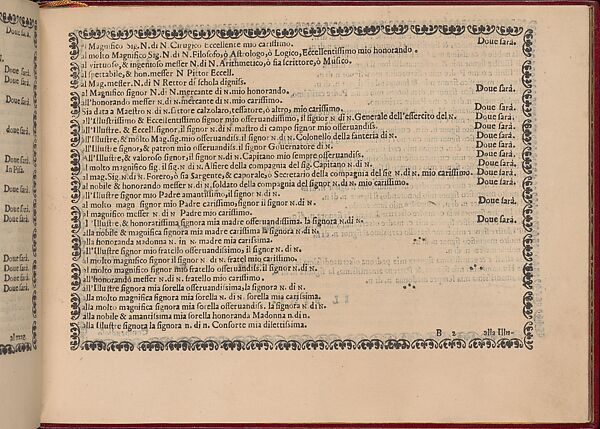 al Magnifico Sig. N. di N Cirugico Eccellente mio carissimo. Doue sarà.
al molto Magnifico Sig. N. di N. Filosofo, ò Astrologo, ò Logico, Eccellentissimo mio honorando.
al virtuoso, & ingenioso messer N. di N. Arithmetico, ò sia scrittore, ò Musico.
al spettabile, & hon. messer N. Pittor Eccell.
al Mag. messer. N. di N Rettor di schola digniss.
al Magnifico signor N. di N. mercante di N. mio honorando. Doue sarà.
all'honorando messer N. di N. mercante di N. mio carissimo.
Sia data a Maestro N di N. sittore calzolaro, tessatore, ò altro, mio carissimo. Doue sarà.
all'Illustrissimo & Eccellentissimo signor mio osseruandissimo, il signor N di N. Generale dell'essercito del N. Doue sarà.
all'Illustre. & Eccell. signor, il signor N. di N. mastro di campo signor mio osseruandiss. Doue sarà.
all'Illustre, & molto Mag. sig. mio osseruandiss. il signor N. di N. Colonello della fanteria di N. Doue sarà.
all'Illustre signor, & patron mio osseruandiss. il signor Gouernatore di N. Doue sarà.
All'Illustre, & valoroso signor, il signor N. di N. Capitano mio sempre osseruandiss. Doue sarà.
al molto Magnifico sig. il sig. N. di N. Alfiere della compagnia del sig. Capitano N. di N. Doue sarà.
al mag. Sig. N. di N. Forero, ò sia Sargente, & caporale, ò Secretario della compagnia del sig N. di N., mio carissimo. Doue sarà.
al nobile & honorando messer N. di N. soldato della compagnia del signor N. di N. mio carissimo. Doue sarà.
all'Illustre signor mio Padre amantissimo, il signor N. di N.
al molto magn signor mio Padre carissimo, signor il signor N. di N. Doue sarà.
al magnifico messer N. di N Padre mio carissimo.
all'Illustre, & honoratissima signora mia madre osseruandissima. la signora N. di N. Doue sarà.
alla nobile & magnifica signora mia madre carissima la signora N. di N.
alla honoranda Madonna N. di N. madre mia carissima.
all'Illustre signor mio fratello osseruandissimo, il signor N. di N.
al molto magnifico signor il signor N. di N. fratel mio carissimo.
al molto magnifico signor mio fratello osseruandiss. il signor N. di N.
all'honorando messer N. di N. fratello mio carissimo.
all'Illustre signora mia sorella osseruandissima, la signora N. di N.
alla molto magnifica signora mia sorella N. di N. sorella mia carissima.
alla molto magnifica signora mia sorella osseruandiss. la signora N. di N.
alla nobile & amantissima mia sorella honoranda Madonna n. di n.
alla Illustre signora la signora n. di n. Consorte mia dilettissima.
B 2 alla Illu-